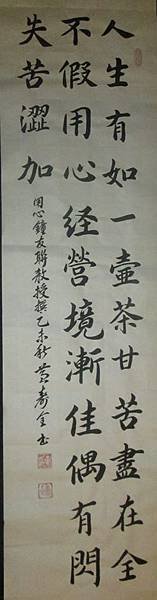 人生有如一壼茶甘苦盡在全
不假用心经營境漸佳偶有閃
失苦澀加
用心鐘友聯教授撰乙未秋黃壽全书